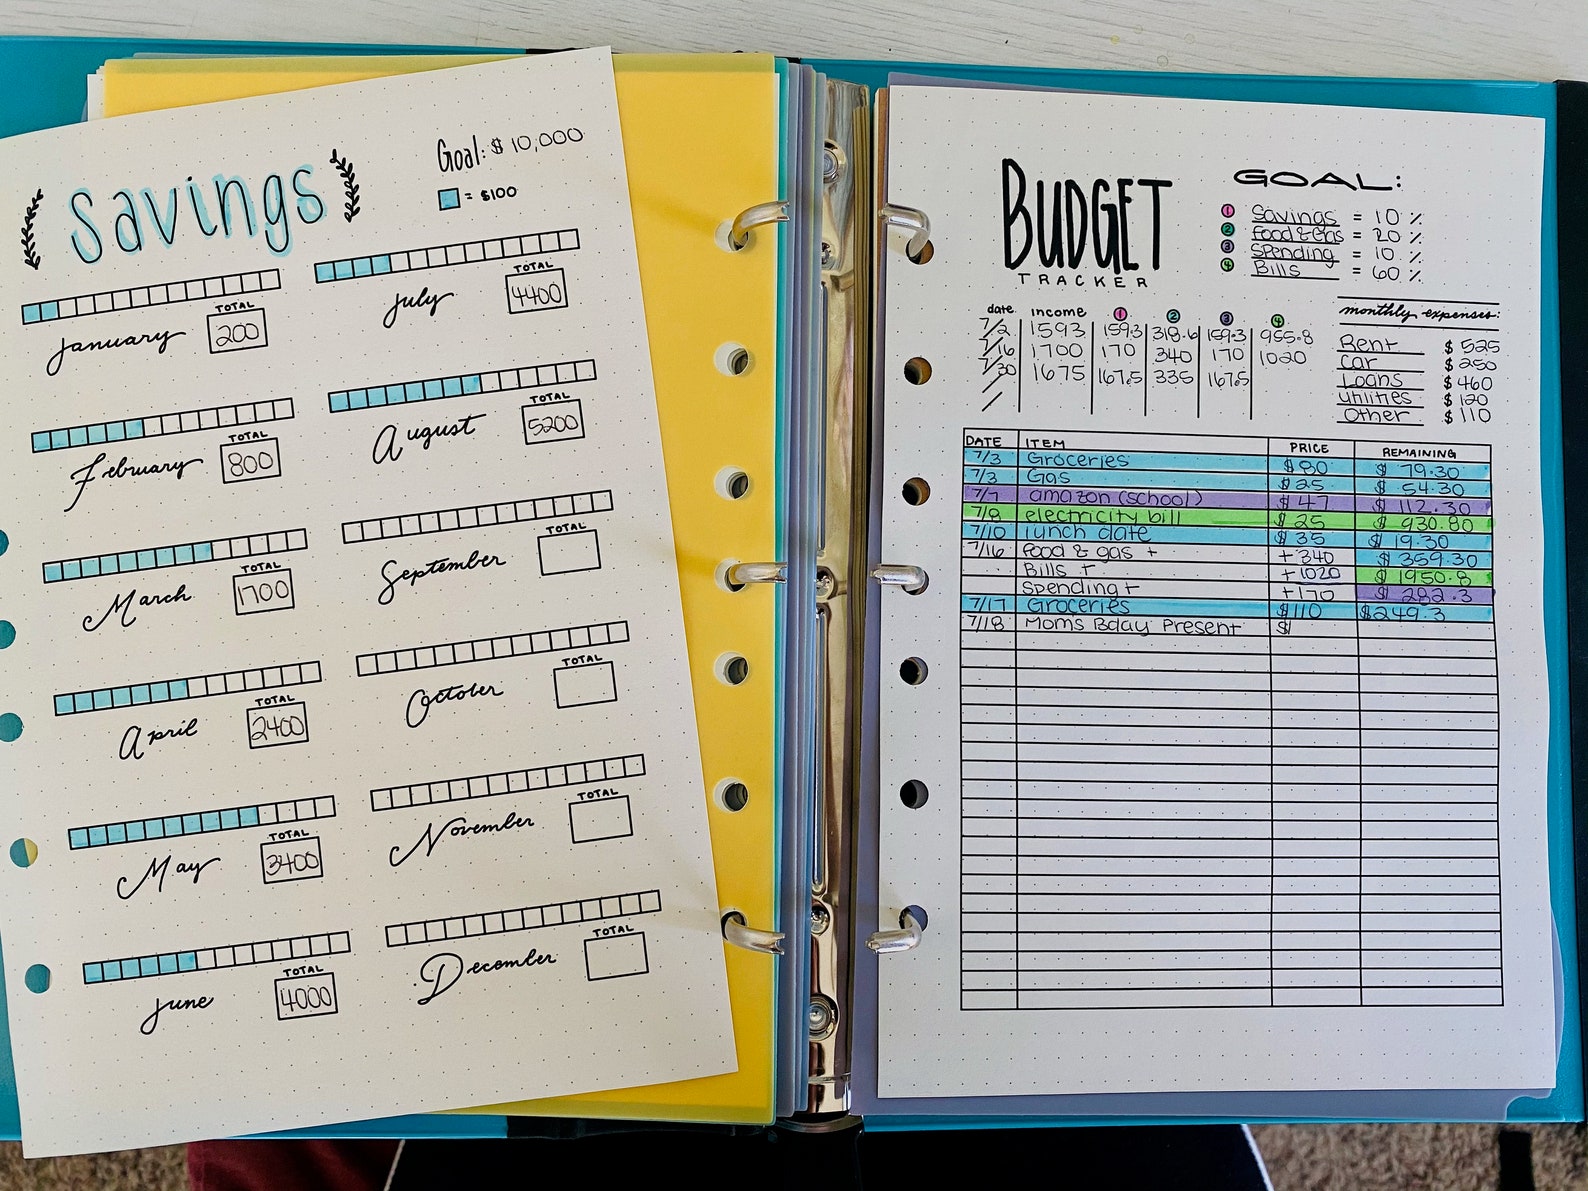 Savings
Goal: $ 10,000
= $100
January
TOTAL
200
July
TOTAL
4400
February
TOTAL
800
August
TOTAL
5200
March
TOTAL
1700
September
TOTAL
April
TOTAL
2400
October
TOTAL
May
TOTAL
3400
November
TOTAL
June
TOTAL
4000
December
TOTAL
BUDGET
TRACKER
GOAL:
1 Savings = 10 %
2 Food & Gas = 20 %
3 Spending = 10 %
4 Bills = 60 %
date income 1 2 3 4
7/2 1593 159.3 318.6 159.3 955.8
7/16 1700 170 340 170 1020
7/30 1675 167.5 335 167.5
/
monthly expenses:
Rent $ 525
Car $ 250
Loans $ 460
utilities $ 120
Other $ 110
DATE ITEM PRICE REMAINING
7/3 Groceries $ 80 $ 79.30
7/3 Gas $ 25 $ 54.30
7/7 amazon (school) $ 47 $ 112.30
7/8 electricity bill $ 25 $ 930.80
7/10 lunch date $ 35 $ 19.30
7/16 food & gas + +340 $ 359.30
Bills + +1020 $ 1950.8
spending + +170 $ 282.3
7/17 Groceries $110 $249.3
7/18 Mom's Bday Present $